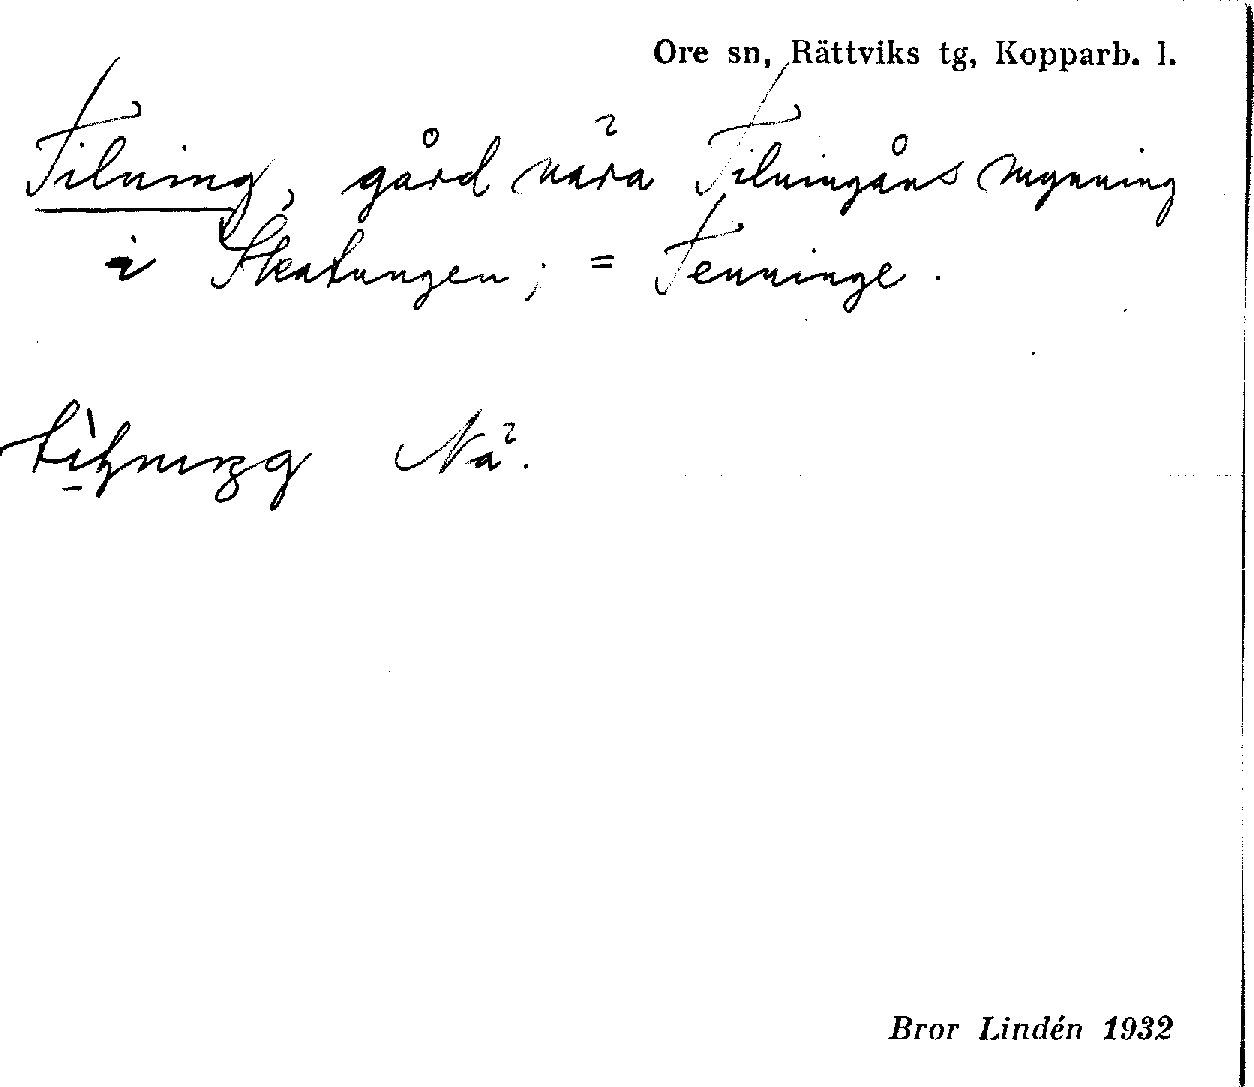 Ore sn, Rättviks tg, Kopparb. l.
Tilning, gård nära Tilningåns mynning
i Skatungen; = Tenninge.
Nä.
Bror Lindén 1932